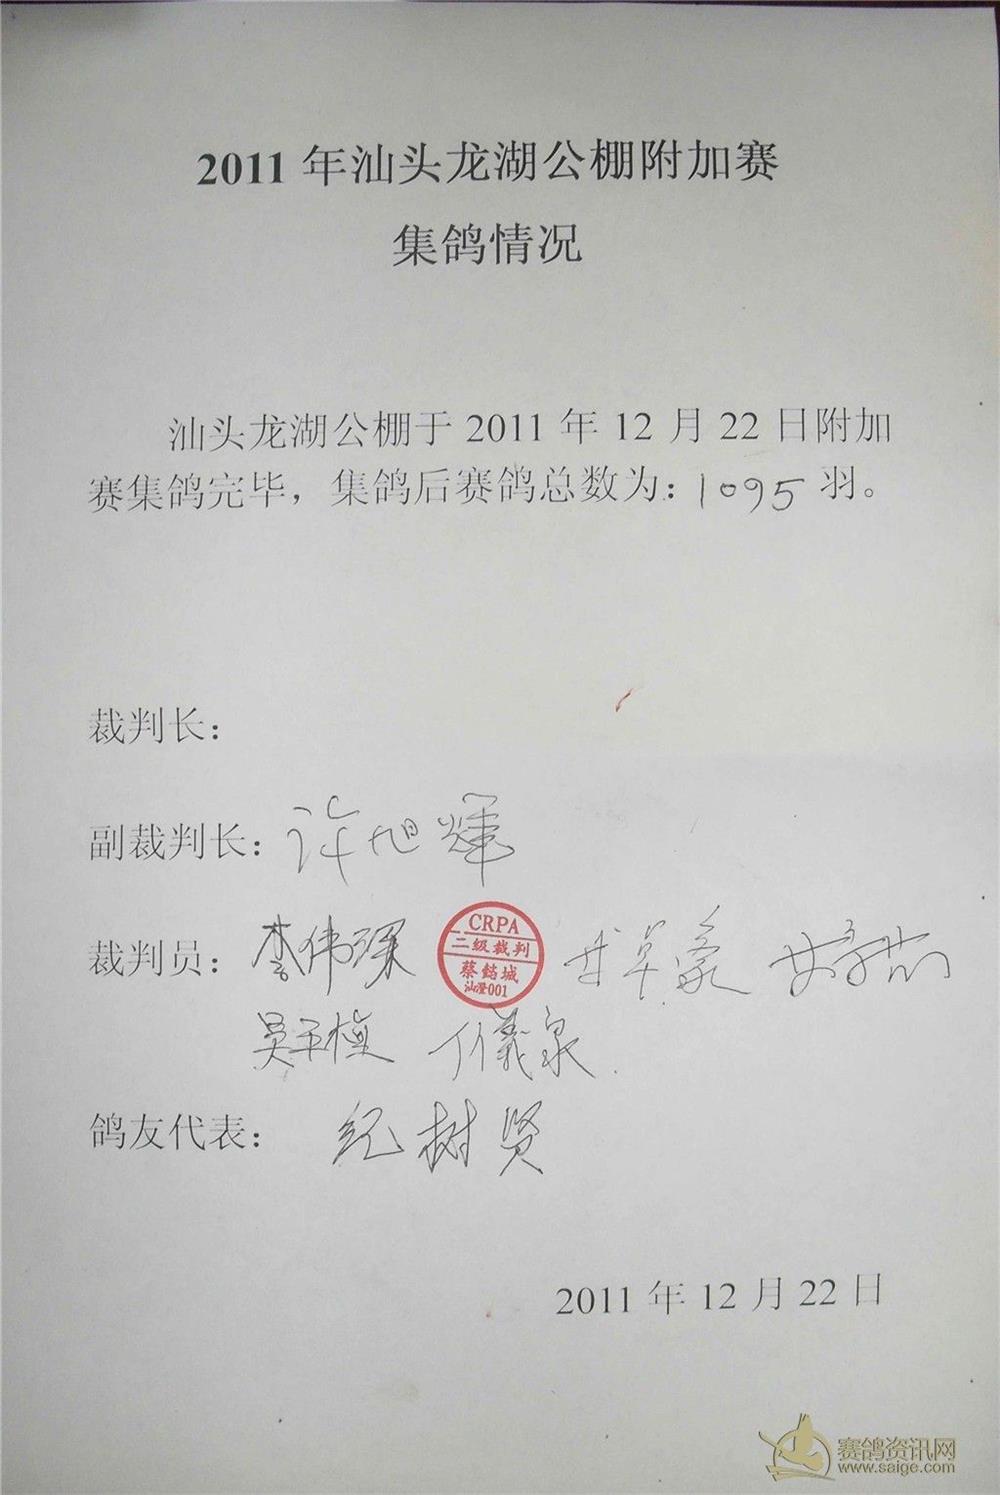 2011 年汕头龙湖公棚附加赛
集鸽情况
汕头龙湖公棚于 2011 年 12 月 22 日附加
赛集鸽完毕，集鸽后赛鸽总数为：1095 羽。
裁判长：
副裁判长：许旭辉
裁判员：李伟深
CRPA
二级裁判
蔡懿城
汕澄001
鸽友代表：纪树贤
2011 年 12 月 22 日
赛鸽资讯网
www.saige.com